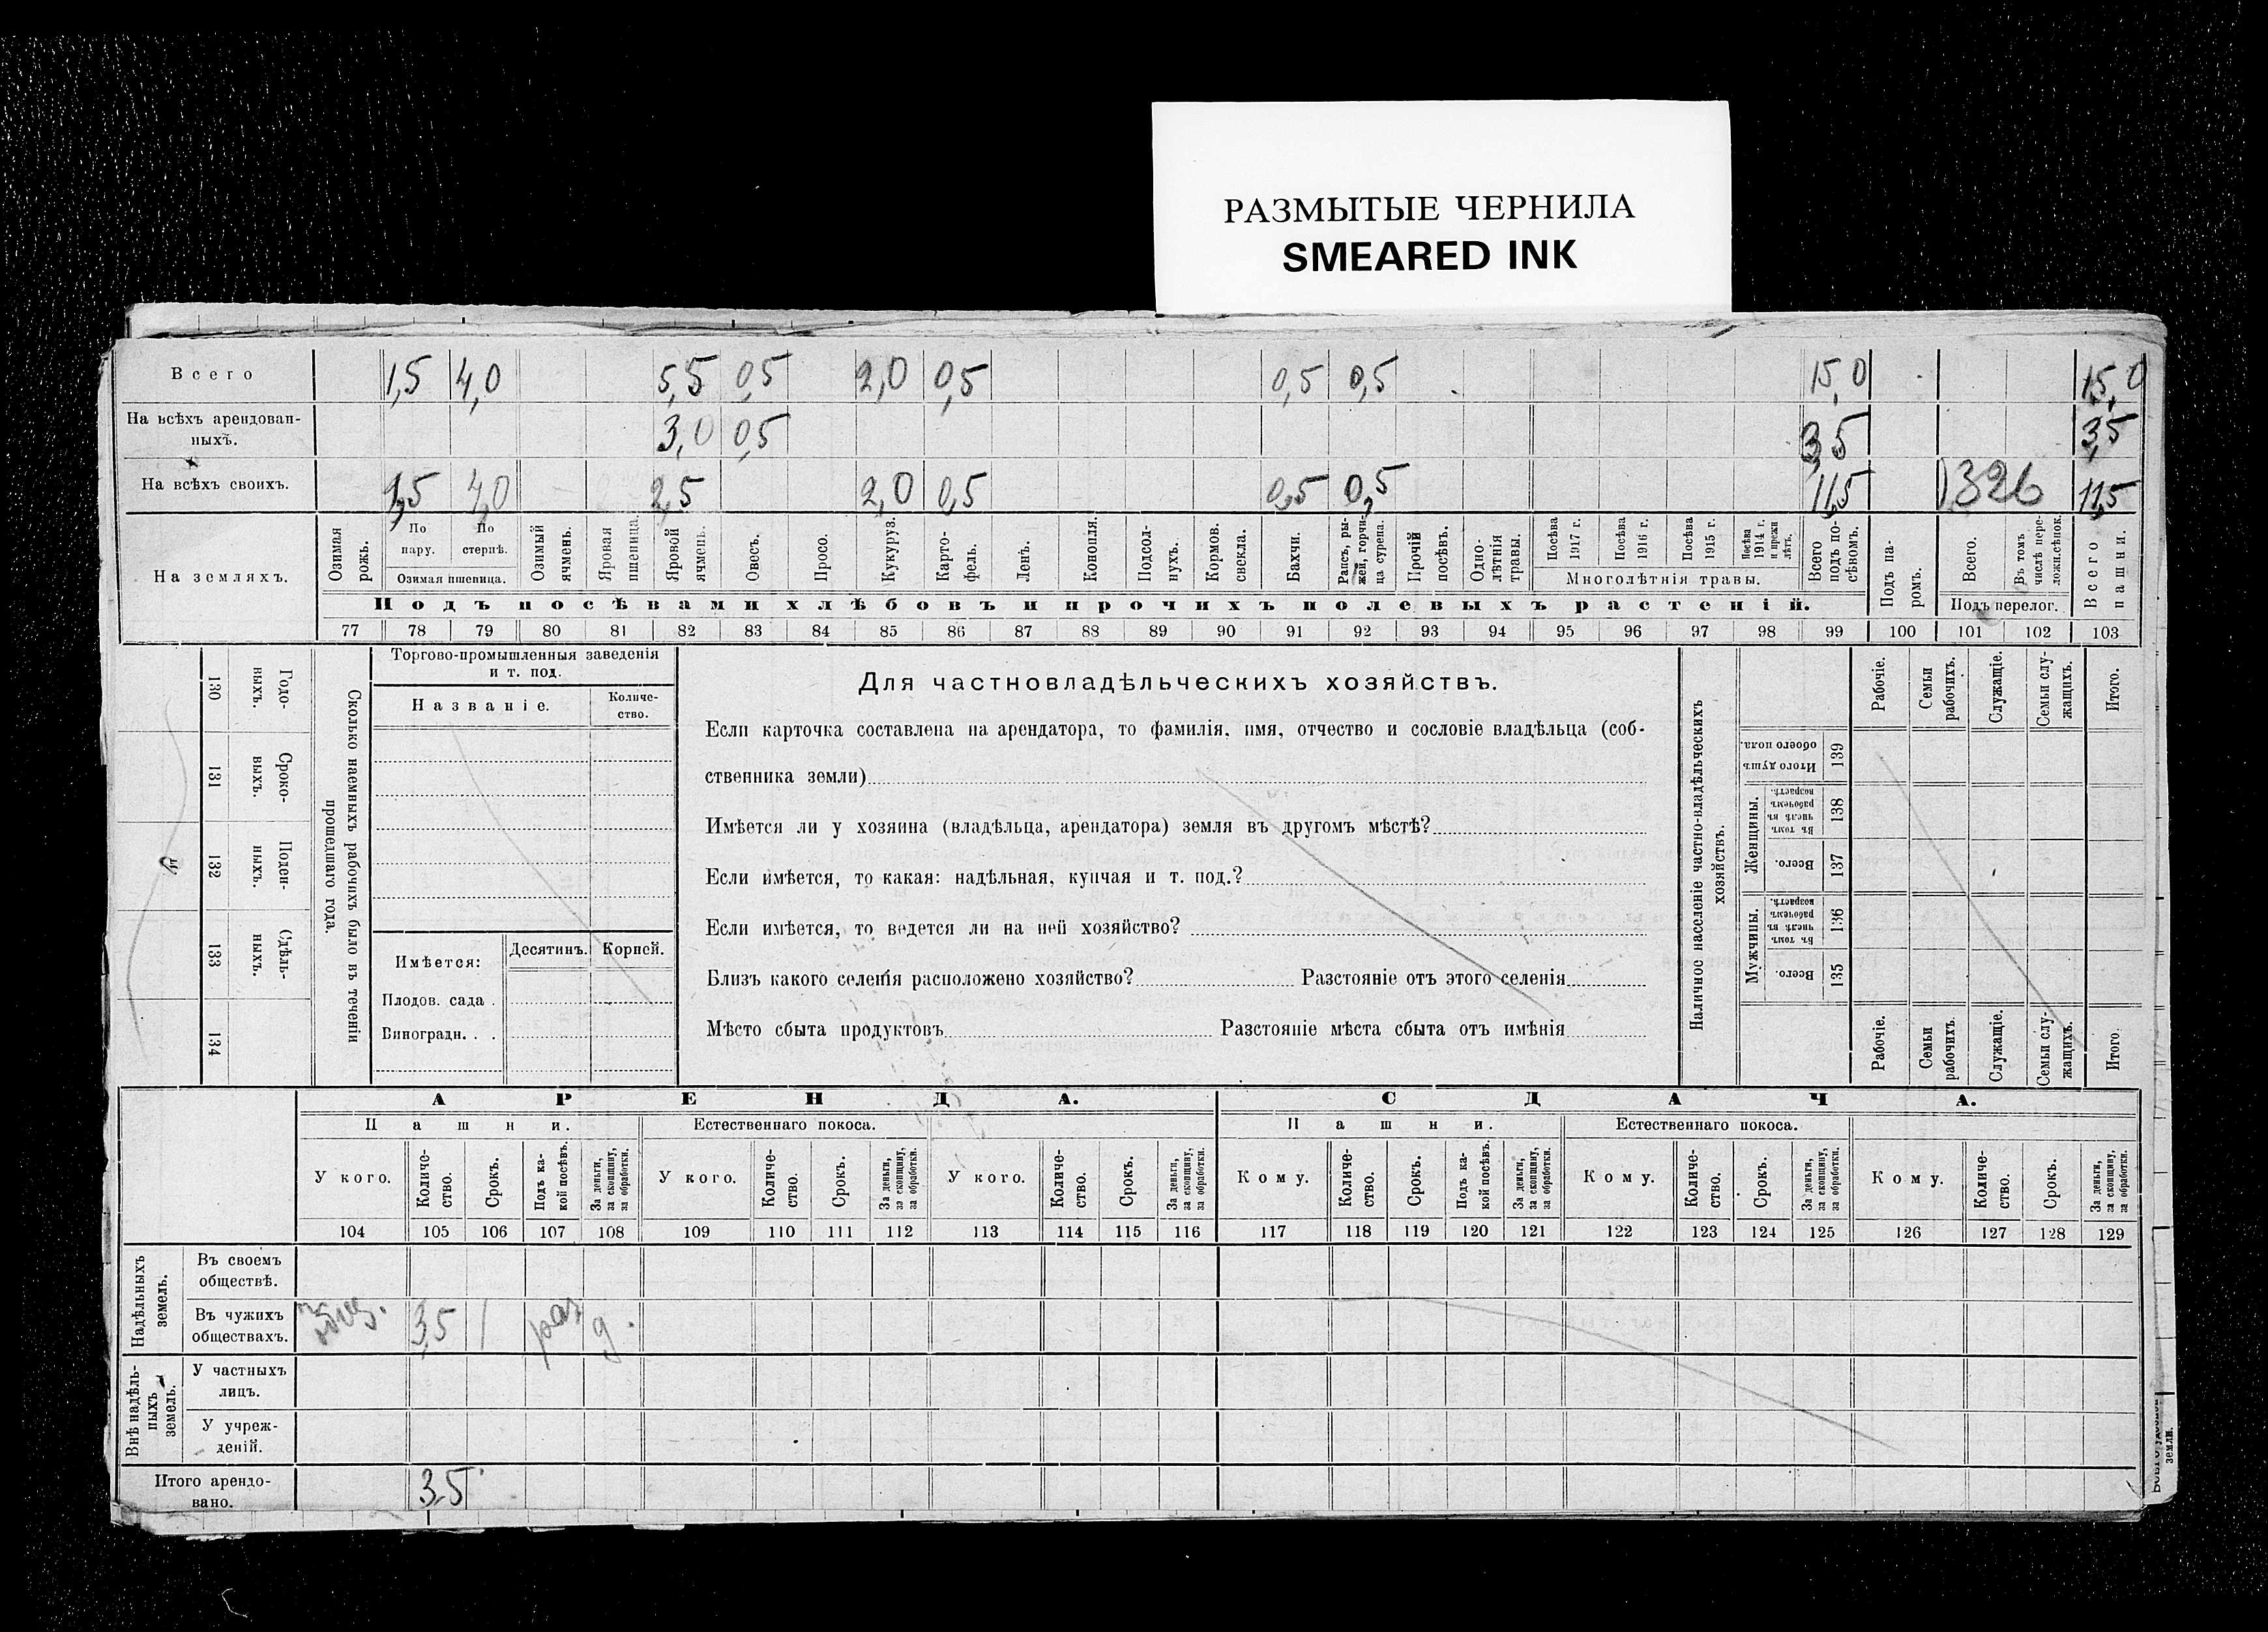 РАЗМЫТЫЕ ЧЕРНИЛА
SMEARED INK
Всего 1,5 4,0 5,5 0,5 2,0 0,5 0,5 0,5 15,0 15,0
На всѣхъ арендован-
ныхъ. 3,0 0,5 3,5 3,5
На всѣхъ своихъ. 1,5 4,0 2,5 2,0 0,5 0,5 0,5 11,5 326 11,5
На земляхъ.
Озимая рожь.
По пару.
По стернѣ.
Озимая пшеница.
Озимый ячмень.
Яровая пшеница.
Яровой ячмень.
Овесъ.
Просо.
Кукуруз.
Карто-
фель.
Ленъ.
Конопля.
Подсол-
нухъ.
Кормов.
свекла.
Бахчи.
Рапсъ, ры-
жей, горчи-
ца сурепа.
Прочій
посѣвъ.
Одно-
лѣтнія
травы.
Посѣва
1917 г.
Посѣва
1916 г.
Посѣва
1915 г.
Посѣва
1914 г.
и прежн
лѣтъ.
Многолѣтнія травы.
Всего
подъ по-
сѣвомъ.
Подъ па-
ромъ.
Всего.
Въ томъ
числѣ пере-
ложн.сѣнок.
Подъ перелог.
Всего
пашни.
Подъ посѣвами хлѣбовъ и прочихъ полевыхъ растеній.
77 78 79 80 81 82 83 84 85 86 87 88 89 90 91 92 93 94 95 96 97 98 99 100 101 102 103
130 Годо-
ныхъ.
131 Сроко-
выхъ.
132 Поден-
ныхъ.
133 Сдѣль-
ныхъ.
134
Сколько наемныхъ рабочихъ было въ теченіи
прошедшаго года.
Торгово-промышленныя заведенія
и т. под.
Названіе.
Количе-
ство.
Имѣется:
Десятинъ.
Корней.
Плодов. сада .
Виноградн. . .
Для частновладѣльческихъ хозяйствъ.
Если карточка составлена на арендатора, то фамилія, имя, отчество и сословіе владѣльца (соб-
ственника земли)
Имѣется ли у хозяина (владѣльца, арендатора) земля въ другомъ мѣстѣ?
Если имѣется, то какая: надѣльная, купчая и т. под.?
Если имѣется, то ведется ли на ней хозяйство?
Близъ какого селенія расположено хозяйство? Разстояніе отъ этого селенія
Мѣсто сбыта продуктовъ Разстояніе мѣста сбыта отъ имѣнія
Наличное населеніе частно-владѣльческихъ
хозяйствъ.
Рабочіе.
Семьи
рабочихъ.
Служащіе.
Семьи слу-
жащихъ.
Итого.
Итого душъ
обоего пола.
139
Женщины.
Въ томъ
числѣ въ
рабочемъ
возрастѣ.
138
Всего.
137
Мужчины.
Въ томъ
числѣ въ
рабочемъ
возрастѣ.
136
Всего.
135
Рабочіе.
Семьи
рабочихъ.
Служащіе.
Семьи слу-
жащихъ.
Итого.
АРЕНДА. СДАЧА.
Пашни. Естественнаго покоса. Пашни. Естественнаго покоса.
У кого.
Количе-
ство.
Срокъ.
Подъ ка-
кой посѣвъ.
За деньги,
за скопщину,
за обработки.
У кого.
Количе-
ство.
Срокъ.
За деньги,
за скопщину,
за обработки.
У кого.
Количе-
ство.
Срокъ.
За деньги,
за скопщину,
за обработки.
Кому.
Количе-
ство.
Срокъ.
Подъ ка-
кой посѣвъ.
За деньги,
за скопщину,
за обработки.
Кому.
Количе-
ство.
Срокъ.
За деньги,
за скопщину,
за обработки.
Кому.
Количе-
ство.
Срокъ.
За деньги,
за скопщину,
за обработки.
104 105 106 107 108 109 110 111 112 113 114 115 116 117 118 119 120 121 122 123 124 125 126 127 128 129
Надѣльныхъ
земель.
Въ своемъ
обществѣ.
Въ чужихъ
обществахъ. 3,5 1 раз д.
Внѣ надѣль-
ныхъ
земель.
У частныхъ
лицъ.
У учреж-
деній.
Итого арендо-
вано. 3,5
земли.